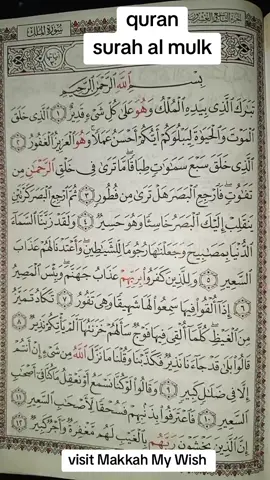 quran
surah al mulk
سُورَةُ الْمُلْكِ
بِسْمِ اللَّهِ الرَّحْمَٰنِ الرَّحِيمِ
تَبَٰرَكَ الَّذِى بِيَدِهِ الْمُلْكُ وَهُوَ عَلَىٰ كُلِّ شَىْءٍ قَدِيرٌ ١ الَّذِى خَلَقَ
الْمَوْتَ وَالْحَيَوٰةَ لِيَبْلُوَكُمْ أَيُّكُمْ أَحْسَنُ عَمَلًا وَهُوَ الْعَزِيزُ الْغَفُورُ ٢
الَّذِى خَلَقَ سَبْعَ سَمَٰوَٰتٍ طِبَاقًا مَّا تَرَىٰ فِى خَلْقِ الرَّحْمَٰنِ مِن
تَفَٰوُتٍ فَارْجِعِ الْبَصَرَ هَلْ تَرَىٰ مِن فُطُورٍ ٣ ثُمَّ ارْجِعِ الْبَصَرَ كَرَّتَيْنِ
يَنقَلِبْ إِلَيْكَ الْبَصَرُ خَاسِئًا وَهُوَ حَسِيرٌ ٤ وَلَقَدْ زَيَّنَّا السَّمَآءَ
الدُّنْيَا بِمَصَٰبِيحَ وَجَعَلْنَٰهَا رُجُومًا لِّلشَّيَٰطِينِ وَأَعْتَدْنَا لَهُمْ عَذَابَ
السَّعِيرِ ٥ وَلِلَّذِينَ كَفَرُوا۟ بِرَبِّهِمْ عَذَابُ جَهَنَّمَ وَبِئْسَ الْمَصِيرُ
٦ إِذَآ أُلْقُوا۟ فِيهَا سَمِعُوا۟ لَهَا شَهِيقًا وَهِىَ تَفُورُ ٧ تَكَادُ تَمَيَّزُ
مِنَ الْغَيْظِ كُلَّمَآ أُلْقِىَ فِيهَا فَوْجٌ سَأَلَهُمْ خَزَنَتُهَآ أَلَمْ يَأْتِكُمْ نَذِيرٌ ٨
قَالُوا۟ بَلَىٰ قَدْ جَآءَنَا نَذِيرٌ فَكَذَّبْنَا وَقُلْنَا مَا نَزَّلَ اللَّهُ مِن شَىْءٍ إِنْ أَنتُمْ
إِلَّا فِى ضَلَٰلٍ كَبِيرٍ ٩ وَقَالُوا۟ لَوْ كُنَّا نَسْمَعُ أَوْ نَعْقِلُ مَا كُنَّا فِىٓ أَصْحَٰبِ
السَّعِيرِ ١٠ فَاعْتَرَفُوا۟ بِذَنۢبِهِمْ فَسُحْقًا لِّأَصْحَٰبِ السَّعِيرِ ١١
إِنَّ الَّذِينَ يَخْشَوْنَ رَبَّهُم بِالْغَيْبِ لَهُم مَّغْفِرَةٌ وَأَجْرٌ كَبِيرٌ ١٢
visit Makkah My Wish